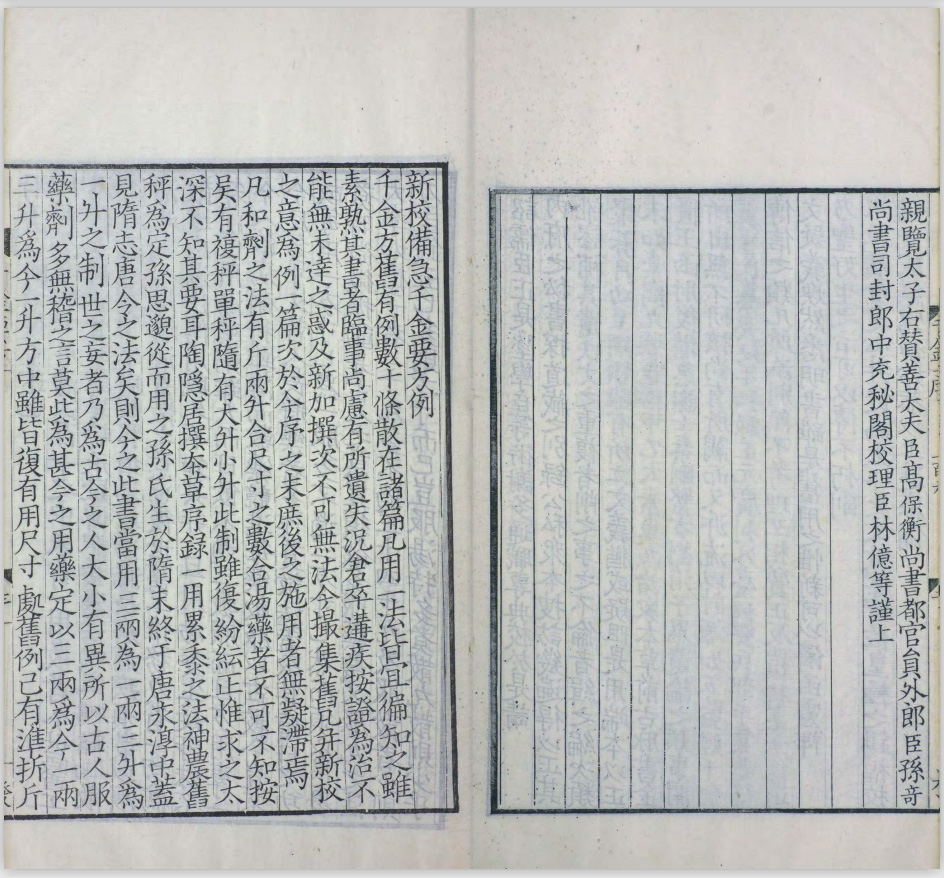 親覽太子右贊善大夫臣髙保衡尚書都官員外郎臣孫竒
尚書司封郎中充秘閣校理臣林億等謹上
新校備急千金要方例
千金方舊有例數十條散在諸篇凡用一法皆宜徧知之雖
素熟其書者臨事尚慮有所遺失況倉卒遘疾按證為治不
能無未達之惑及新加撰次不可無法今撮集舊凡并新校
之意為例一篇次於今序之末庶後之施用者無疑滯焉
凡和劑之法有斤兩升合尺寸之數合湯藥者不可不知按
吳有複秤單秤隋有大升小升此制雖復紛紜正惟求之太
深不知其要耳陶隱居撰本草序録一用累黍之法神農舊
秤為定孫思邈從而用之孫氏生於隋末終于唐永淳中蓋
見隋志唐令之法矣則今之此書當用三兩為一兩三升為
一升之制世之妄者乃為古今之人大小有異所以古人服
藥劑多無稽之言莫此為甚今之用藥定以三兩爲今一兩
三升爲今一升方中雖皆復有用尺寸處舊例已有準折斤